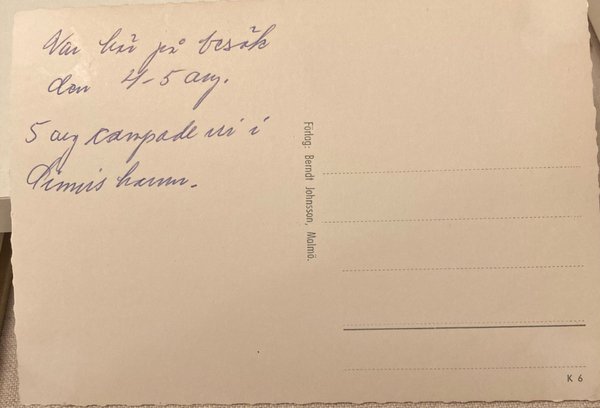 Var här på besök
den 4-5 aug.
5 aug campade vi i
Simrishamn.
Förlag: Berndt Johnsson, Malmö.
K 6